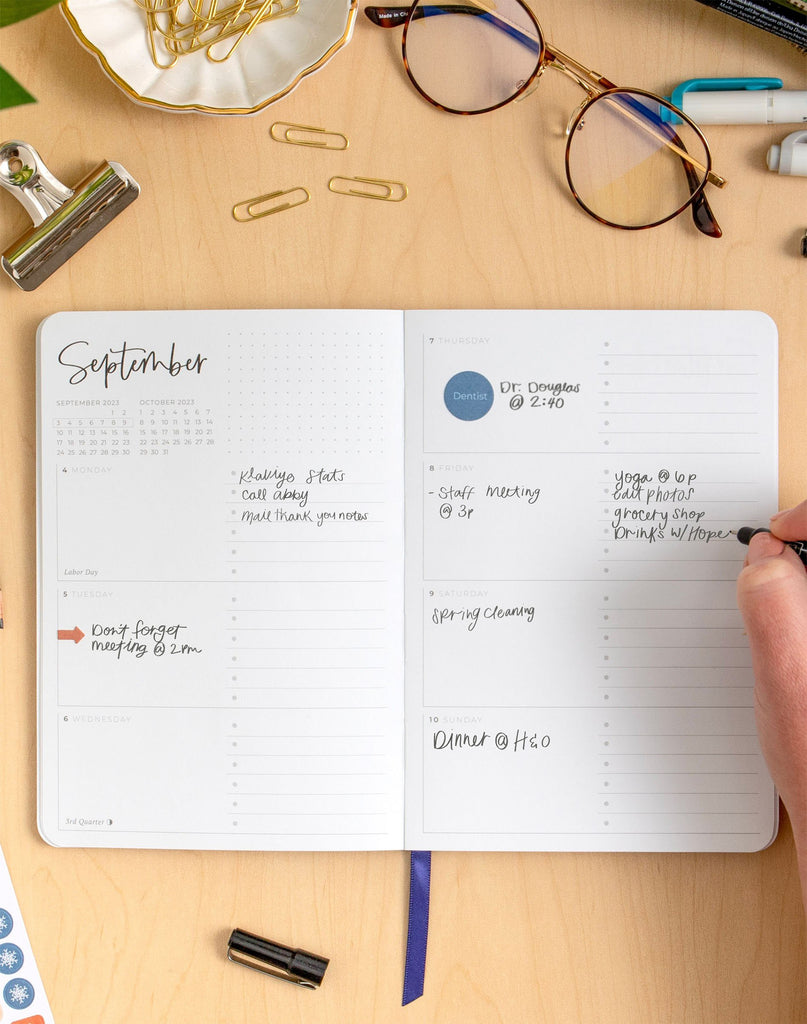 Made in China
September
SEPTEMBER 2023
1 2
3 4 5 6 7 8 9
10 11 12 13 14 15 16
17 18 19 20 21 22 23
24 25 26 27 28 29 30
OCTOBER 2023
1 2 3 4 5 6 7
8 9 10 11 12 13 14
15 16 17 18 19 20 21
22 23 24 25 26 27 28
29 30 31
4 MONDAY
Klaviyo Stats
Call abby
Mail thank you notes
Labor Day
5 TUESDAY
Don't forget
meeting @ 2pm
6 WEDNESDAY
3rd Quarter
7 THURSDAY
Dentist
Dr. Douglas
@ 2:40
8 FRIDAY
- Staff Meeting
@ 3p
yoga @ 6p
edit photos
grocery shop
Drinks w/Hope
9 SATURDAY
Spring Cleaning
10 SUNDAY
Dinner @ H&O